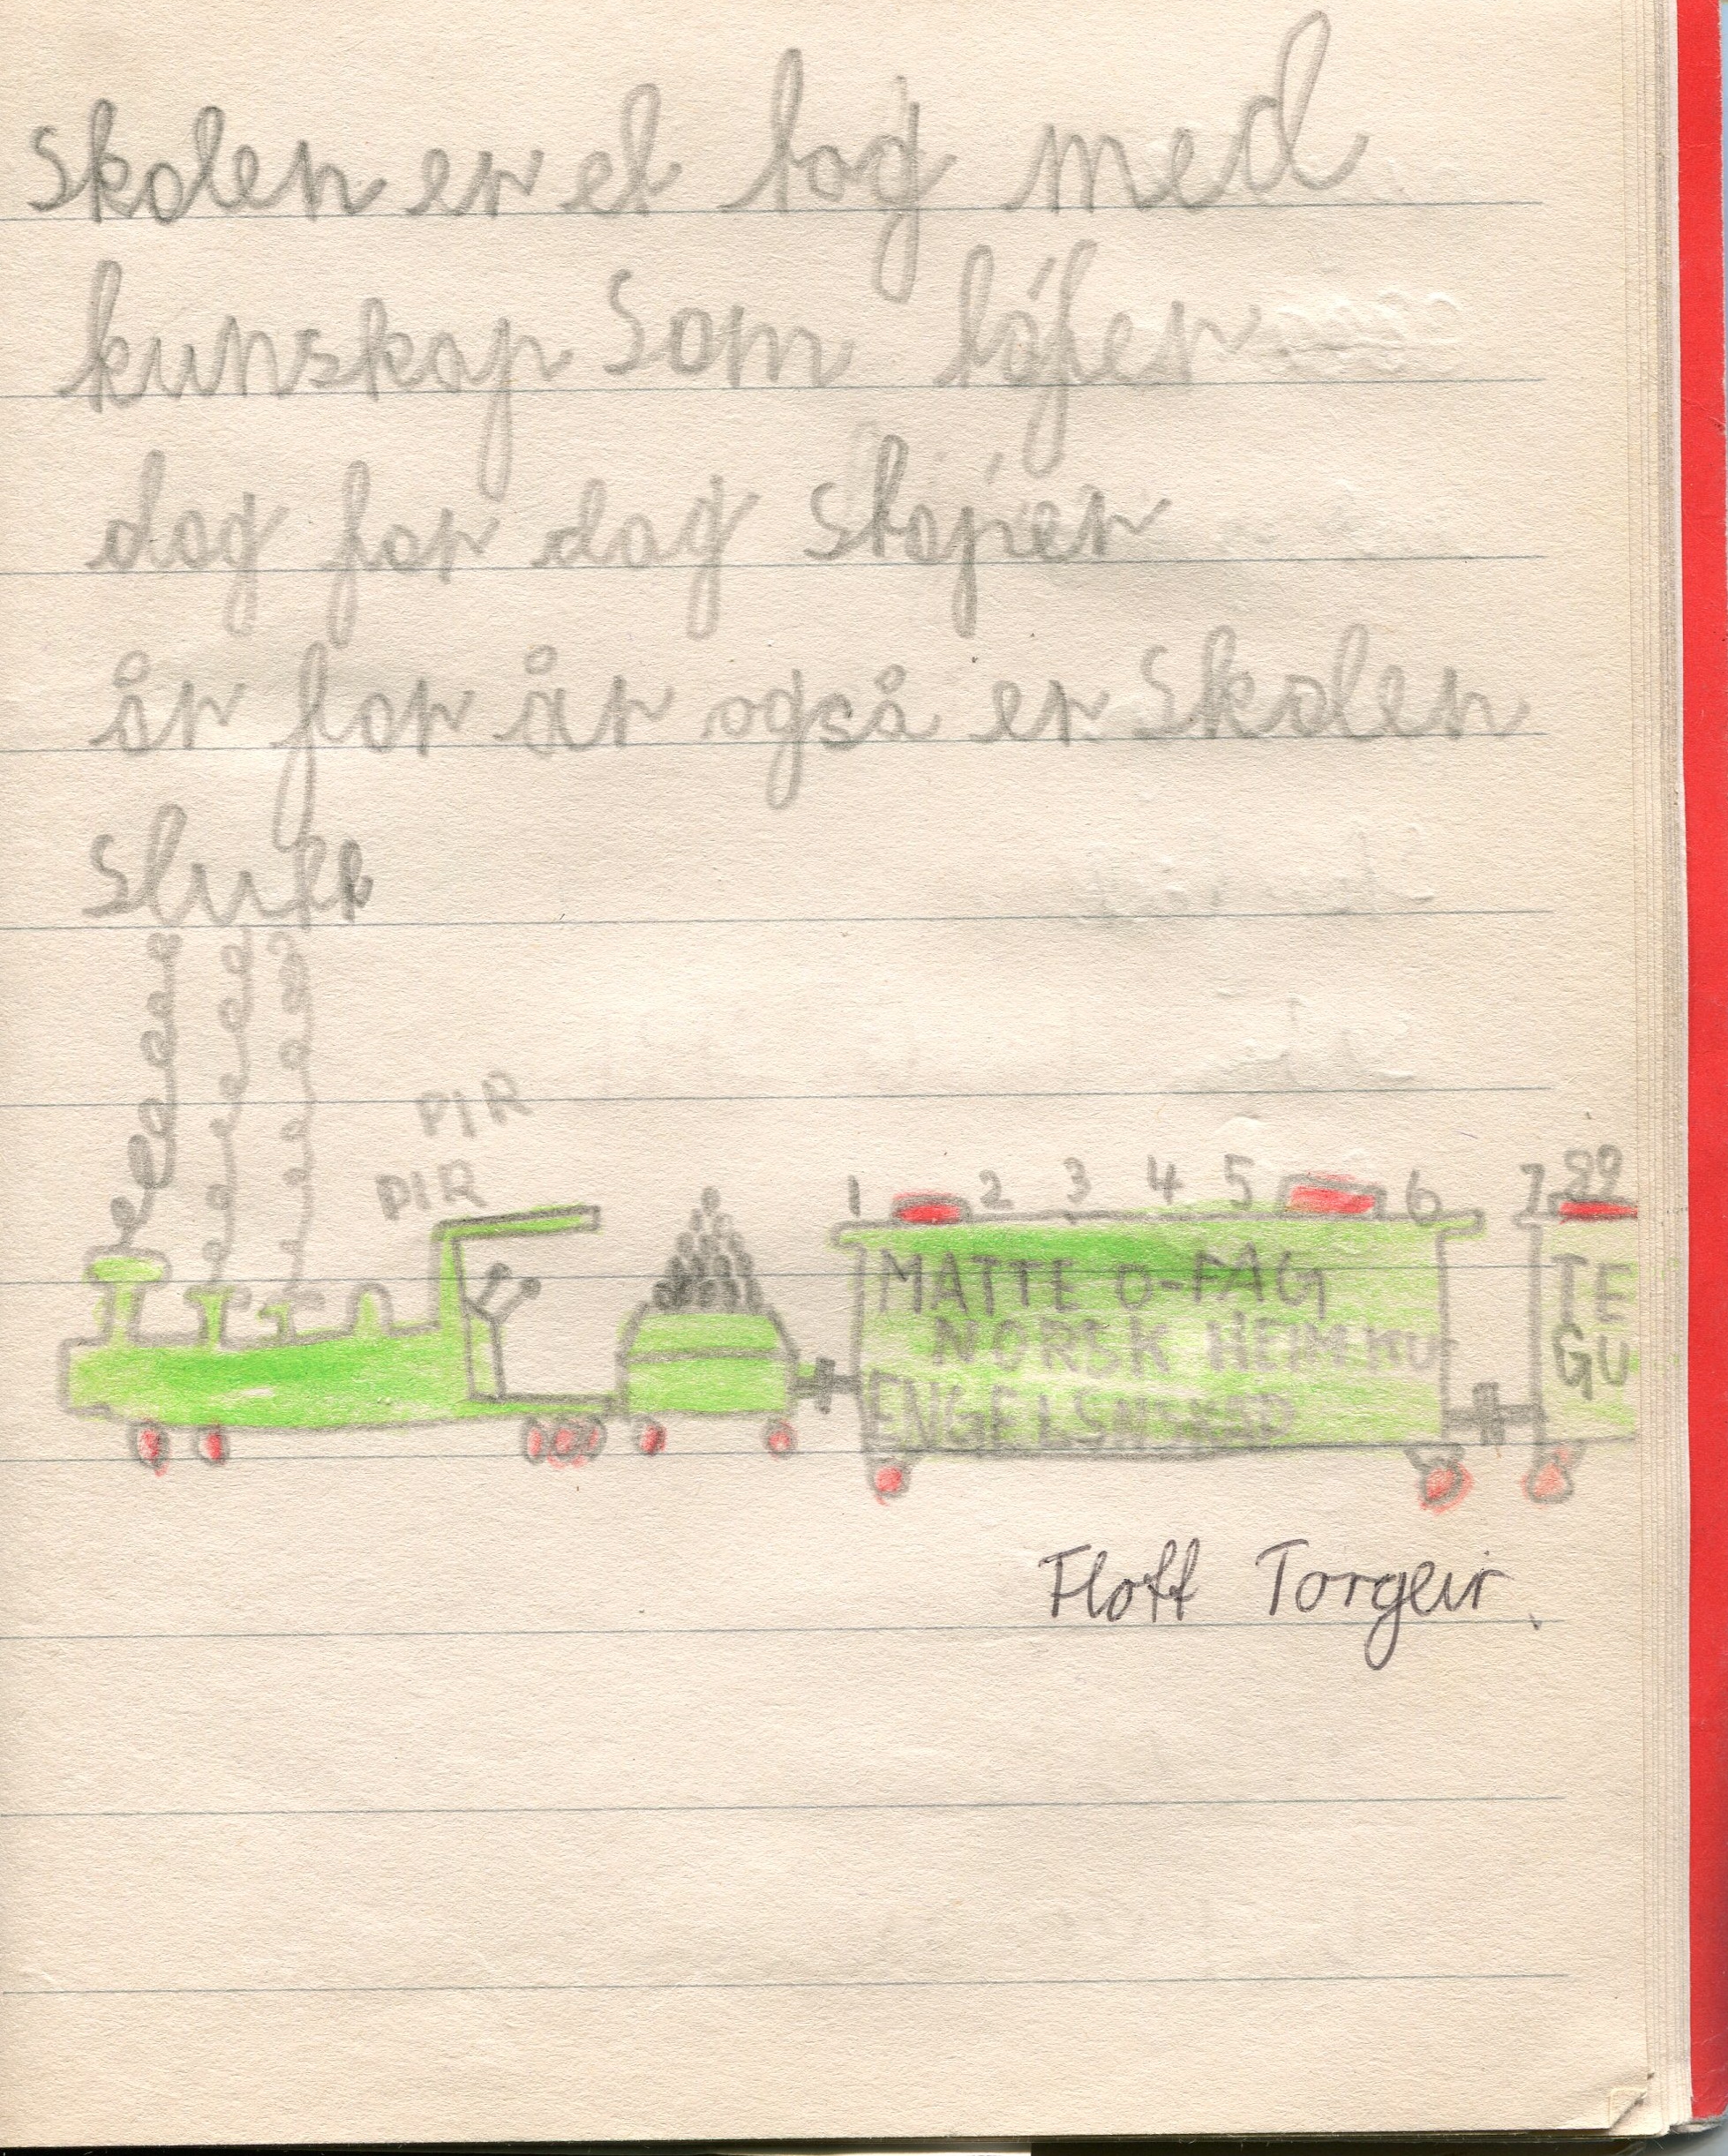 Skolen er et tog med
kunskap Som tøfer
dag for dag
år for år også er Skolen
Slutt
PIR
PIR
1 2 3 4 5 6 7 89
MATTE O-FAG TE
NORSK HEIMKU GU
Flott Torgeir.